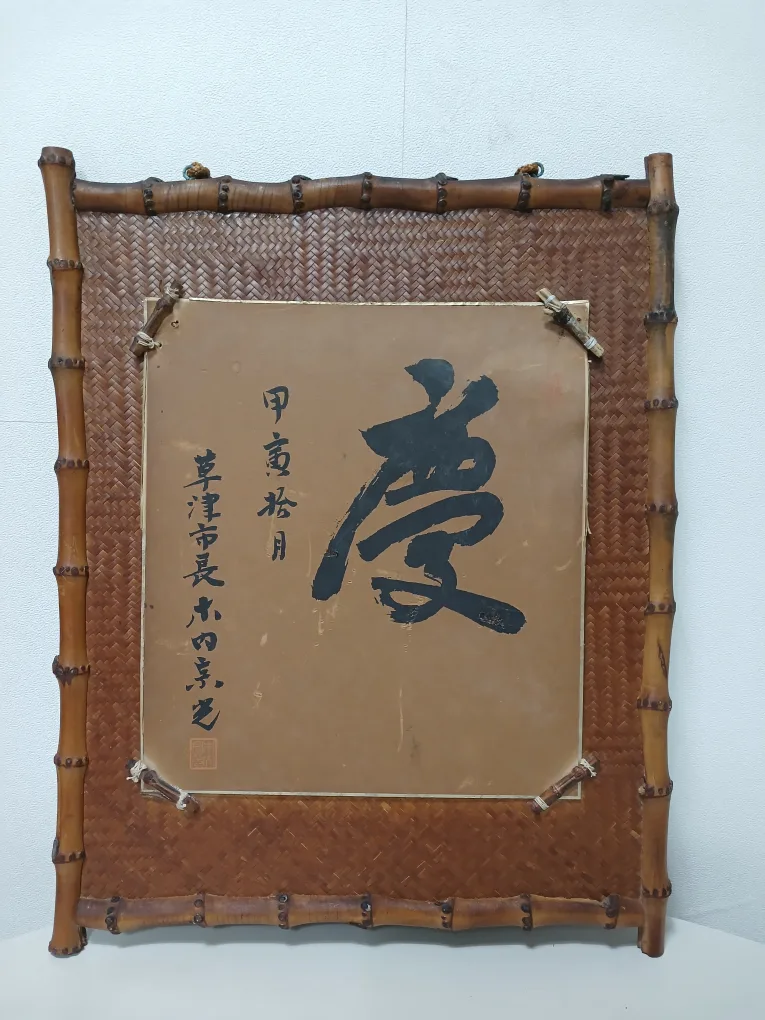 慶
甲寅拾月
草津市長木内京光